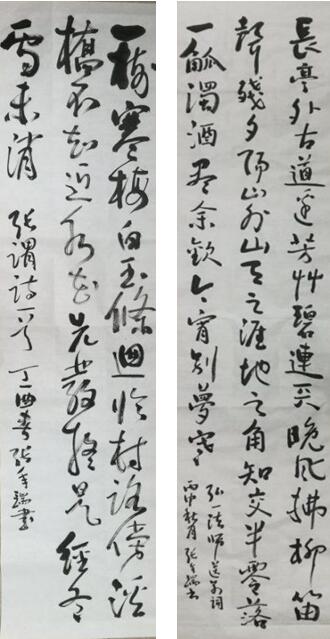 長亭外古道邊芳艸碧連天晚風拂柳笛
聲殘夕陽山外山天之涯地之角知交半零落
一觚濁酒尽余歡今宵別夢寒
弘一法師送別詞
丙申秋月張瑞書
一樹寒梅白玉條迴臨村路傍溪
橋不知近水花先發疑是經冬
雪未消 張謂詩一首 丁酉春張瑞書